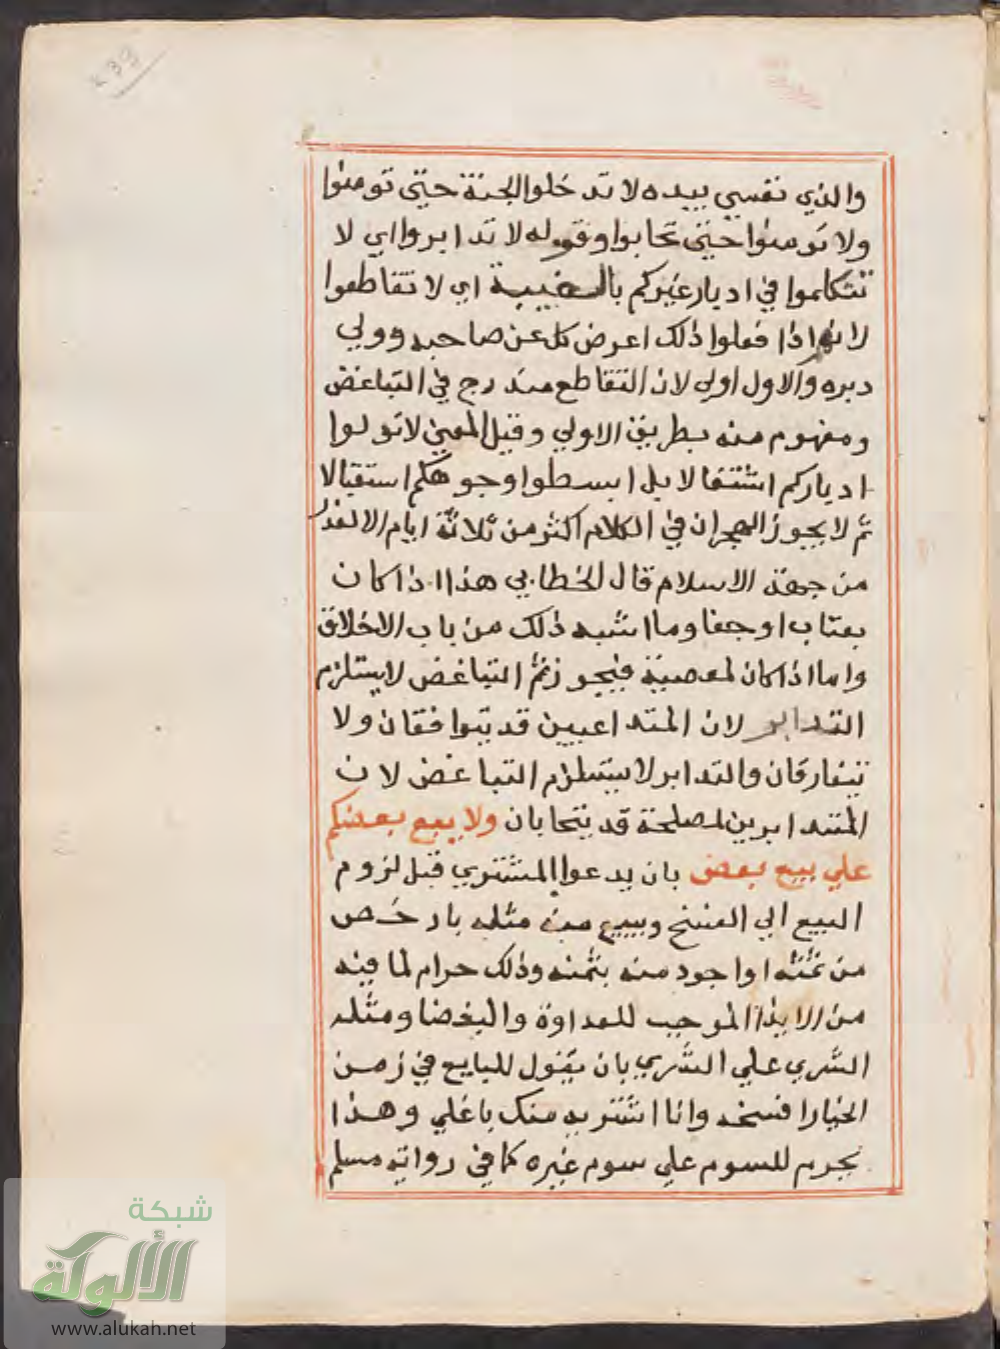 والذي نفسي بيده لا تدخلوا الجنة حتي تومنوا
ولا تومنوا حتي تحابوا وقوله لا تدابروا اي لا
تتكلموا في ادبار غيركم بالغيبة اي لا تقاطعوا
لانهم اذا فعلوا ذلك اعرض كل عن صاحبه وولي
دبره والاول اولي لان التقاطع مندرج في التباغض
ومفهوم منه بطريق الاولي وقيل المعني لا تولوا
ادباركم استثقالا بل ابسطوا وجوهكم استقبالا
ثم لا يجوز الهجران في الكلام اكثر من ثلاثة ايام الا لعذر
من جهة الاسلام قال الخطابي هذا اذا كان
بعتاب او جفا وما اشبه ذلك من باب الاخلاق
واما اذا كان لمعصية فيجوز ثم التباغض لا يستلزم
التدابر لان المتداعيين قد يتوافقان ولا
يتفارقان والتدابر لا يستلزم التباغض لان
المتدابرين لمصلحة قد يتحابان ولا يبع بعضكم
علي بيع بعض بان يدعوا المشتري قبل لزوم
البيع الي الفسخ وبيع منه مثله بارخص
من ثمنه او اجود منه بثمنه وذلك حرام لما فيه
من الايذا الموجب للعداوة والبغضا ومثله
الشري علي الشري بان يقول للبايع في زمن
الخيار افسخه وانا اشتريه منك باغلي وهذا
يحرم للسوم علي سوم غيره كما في رواية مسلم
شبكة
الألوكة
www.alukah.net